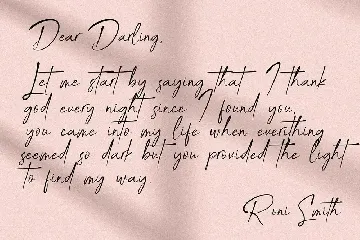 Dear Darling,
Let me start by saying that I thank
god every night since I found you.
you came into my life when everithing
seemed so dark but you provided the light
to find my way
Roni Smith